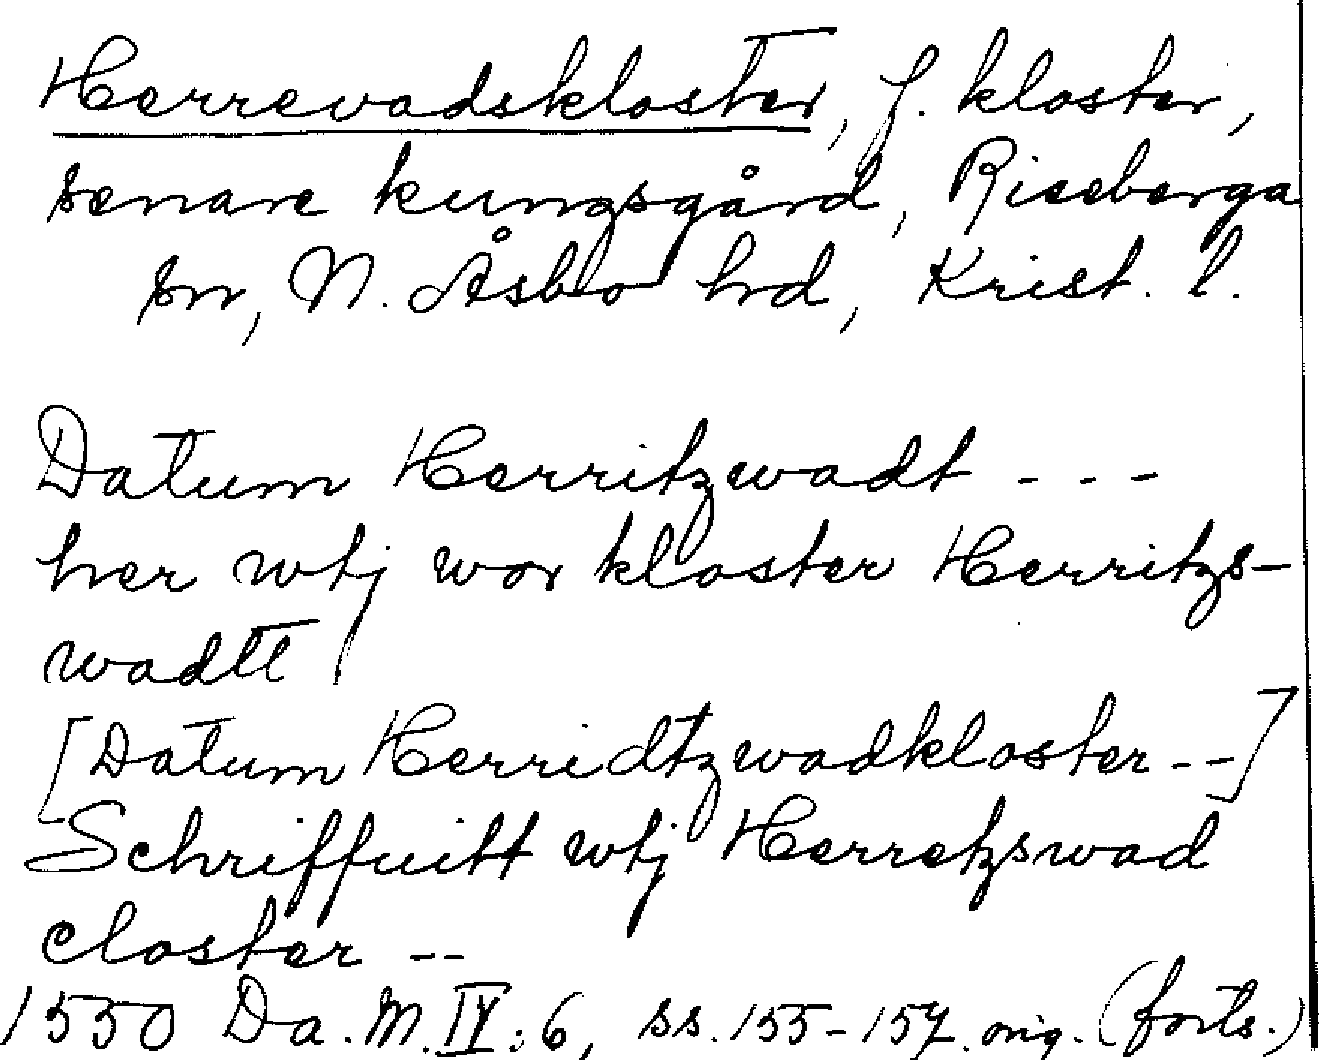 Herrevadskloster, f. kloster,
senare kungsgård, Riseberga
sn, N. Åsbo hrd, Krist. l.
Datum Herritzwadt - - -
her wtj wor kloster Herritzs-
wadtt
[Datum Herridtzwadkloster - -]
Schriffuitt wtj Herretzswad
closter - -
1550 Da. M. IV: 6, ss. 155-157. orig. (forts.)